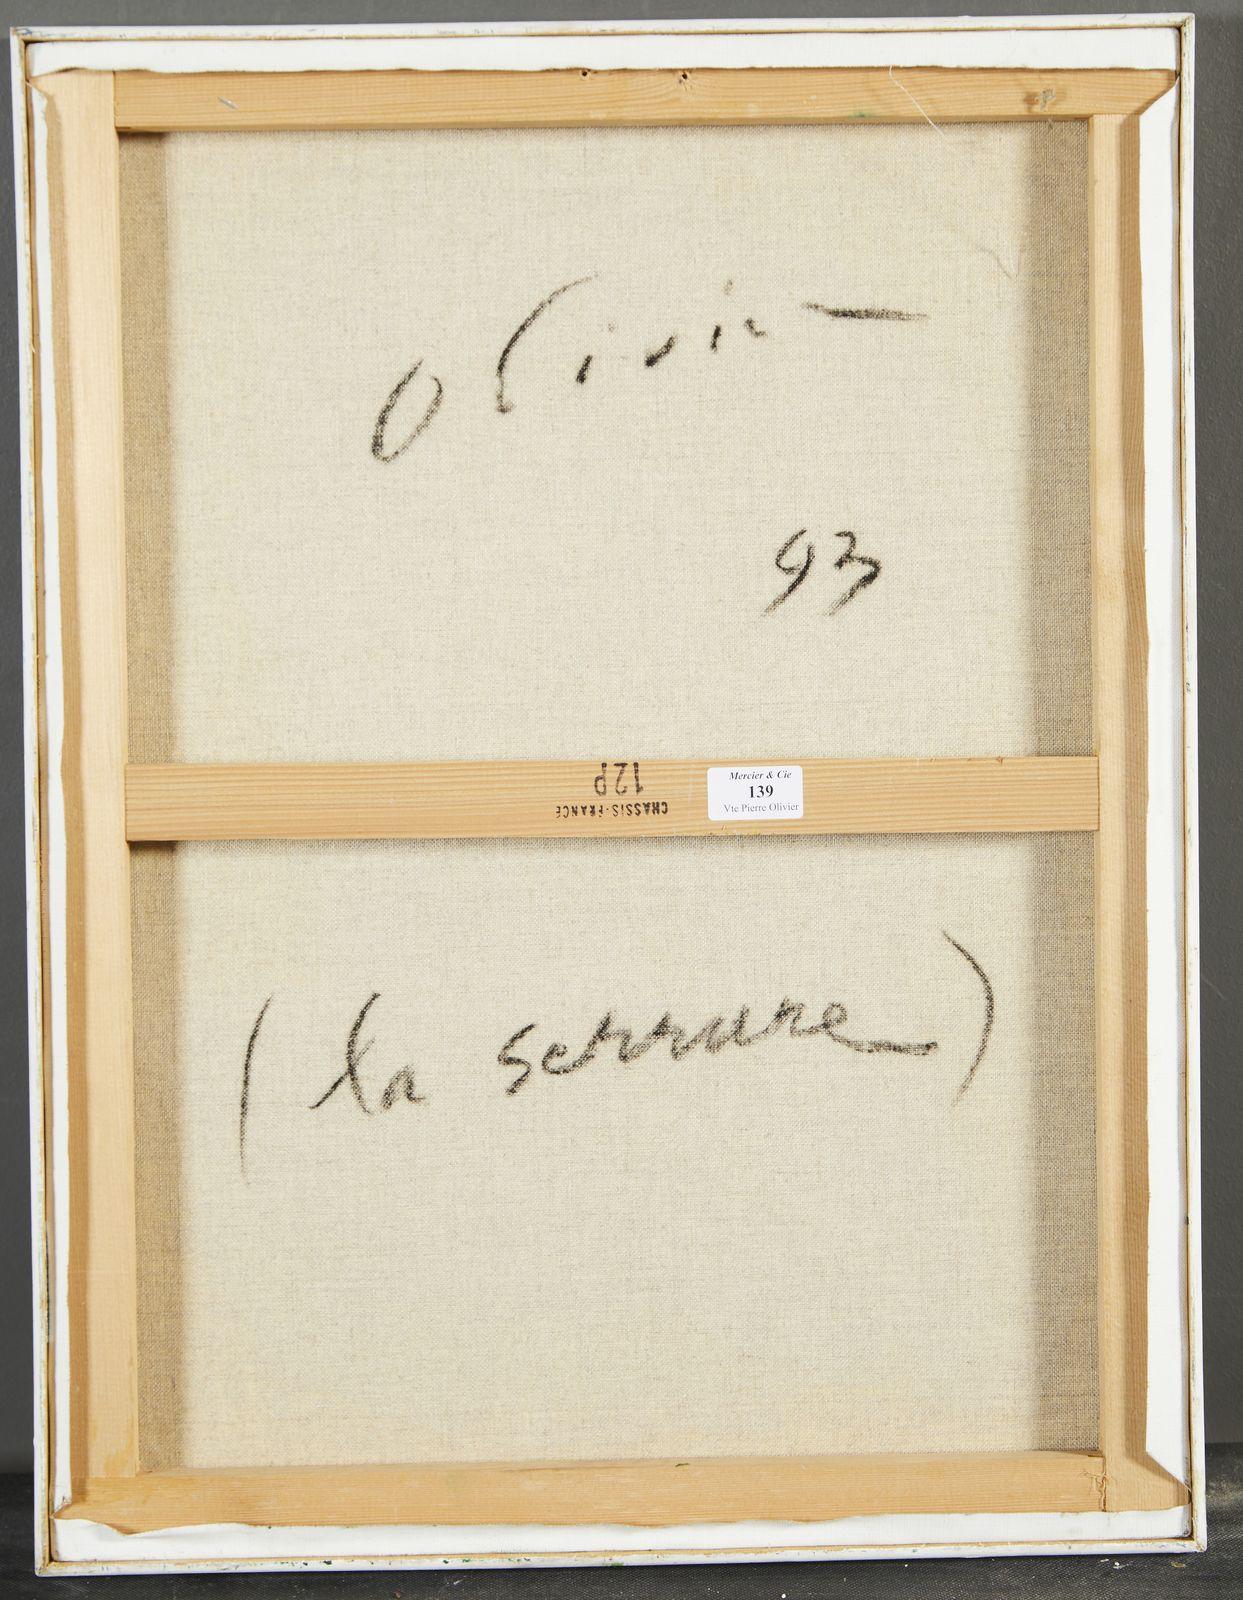 Olivier
93
12P
CHASSIS-FRANCE
Mercier & Cie
139
Vte Pierre Olivier
(la serrure)